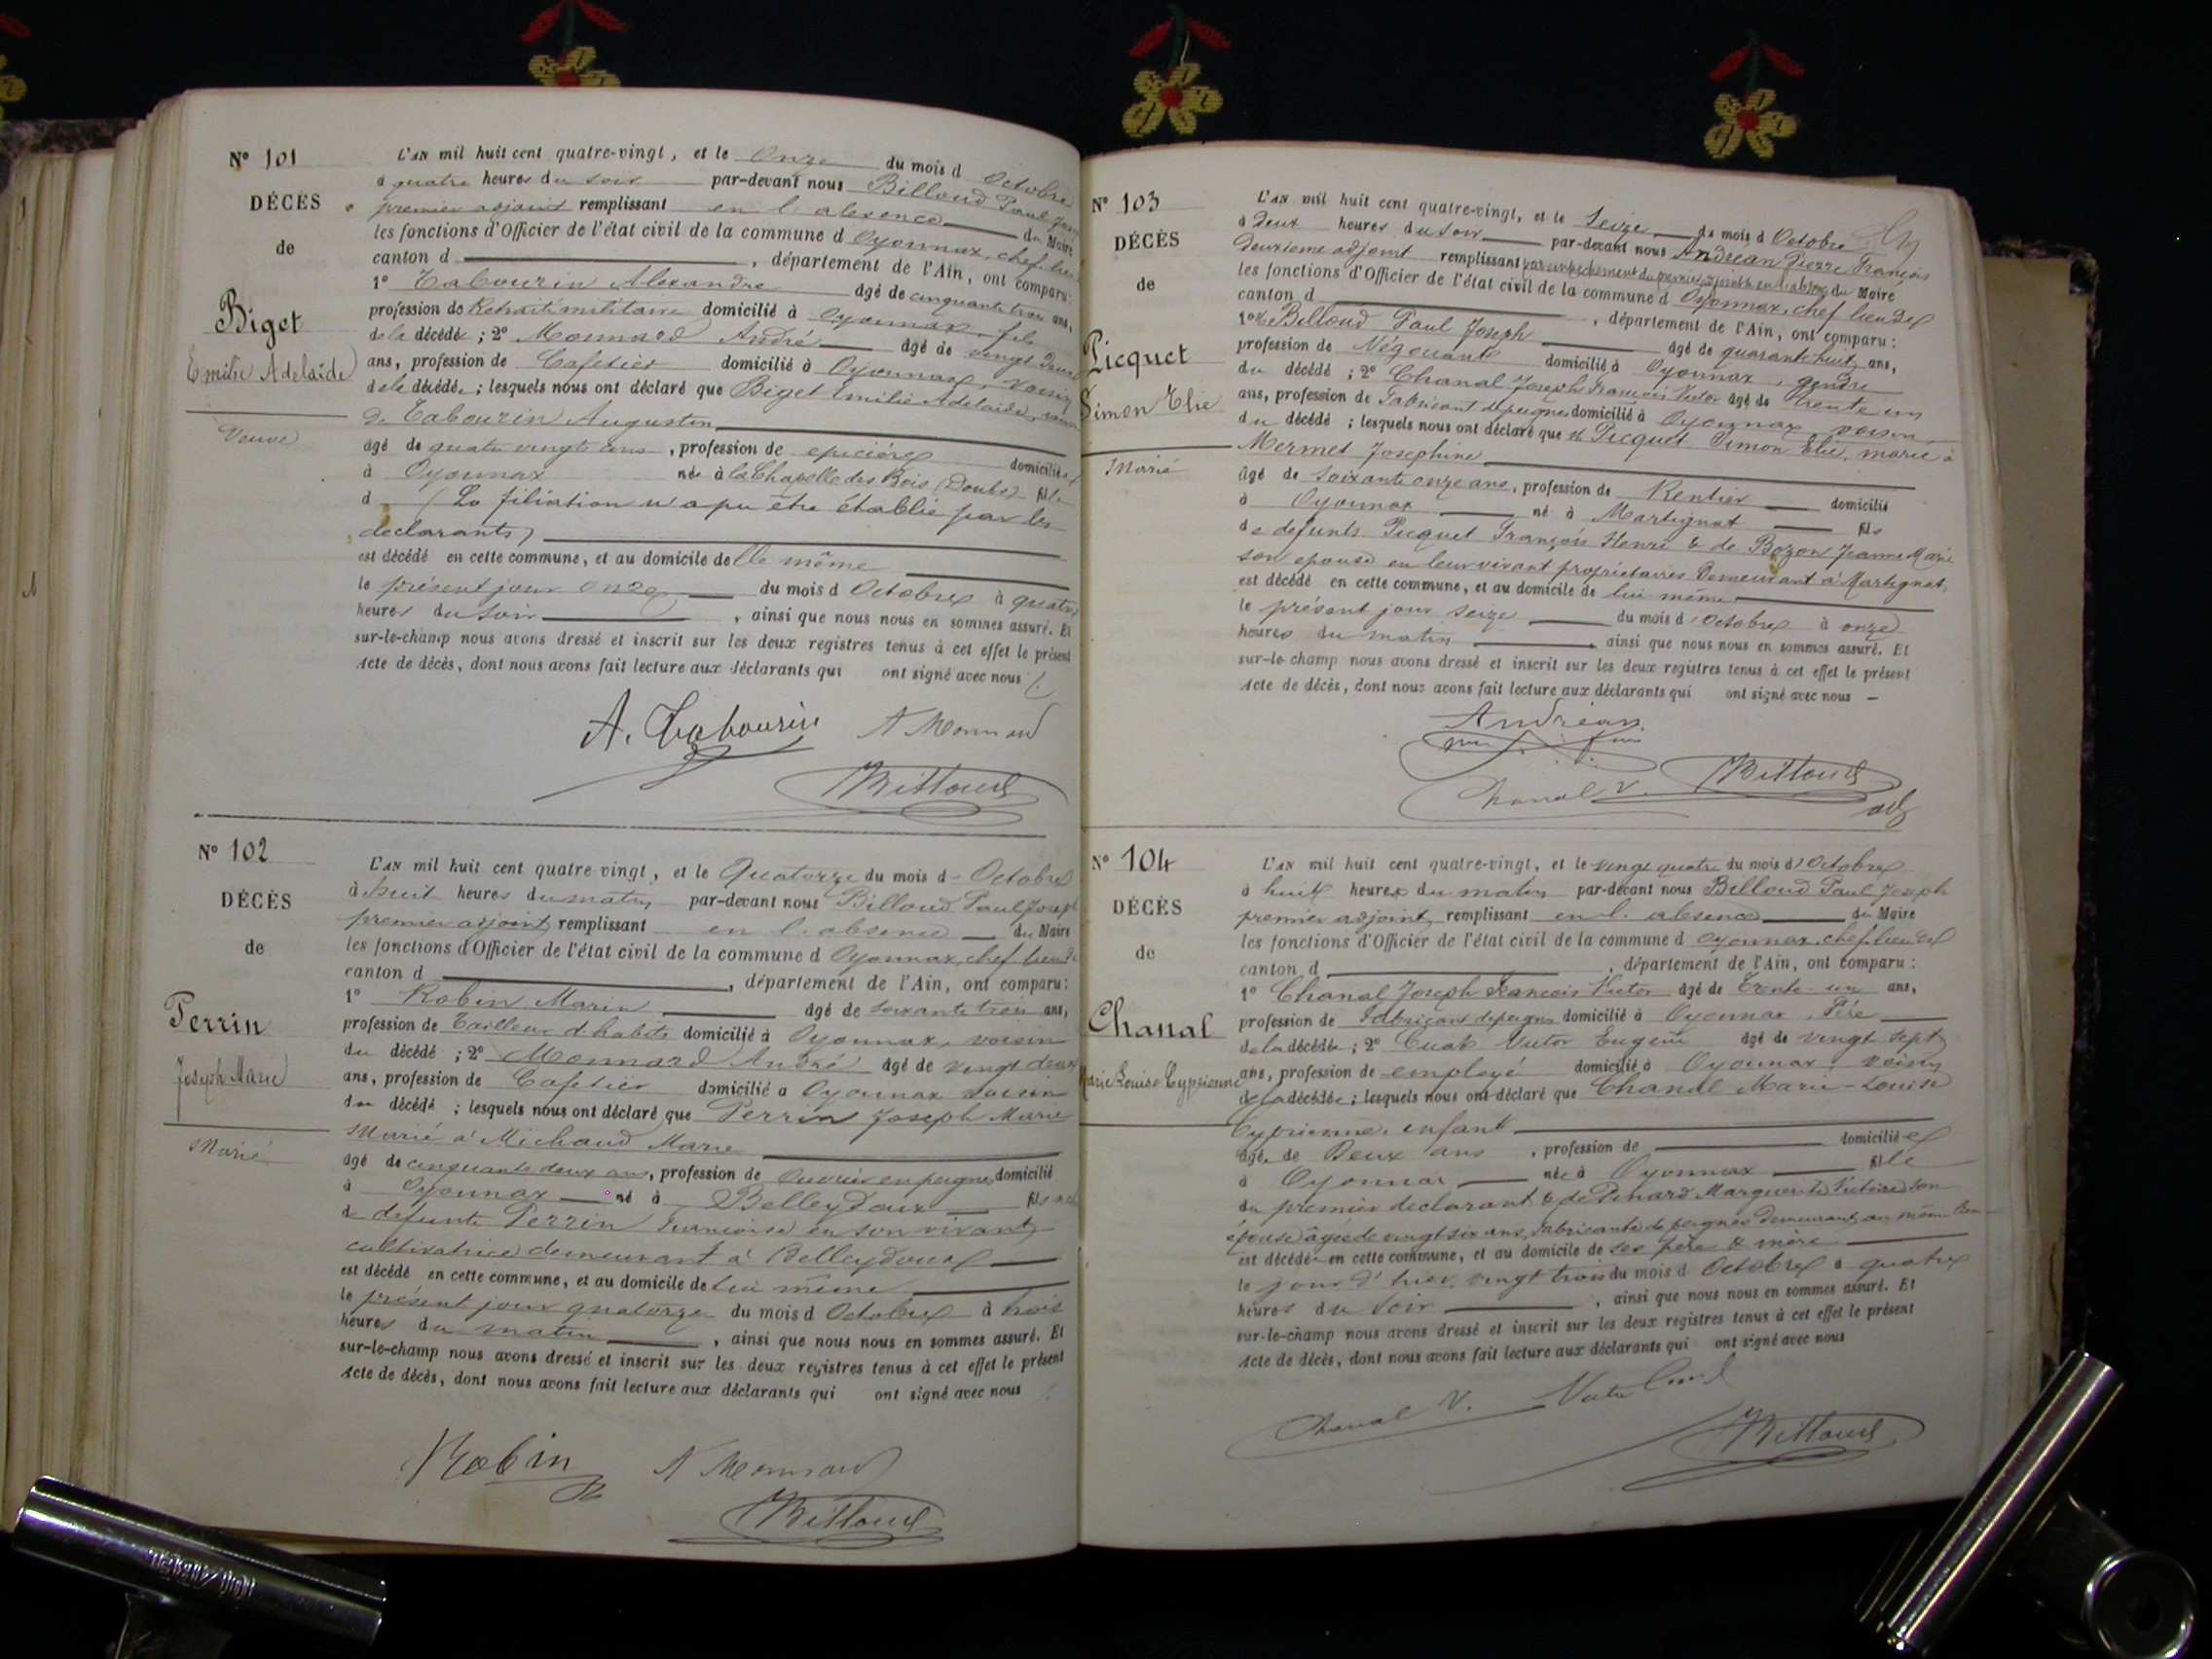 N° 101
DÉCÈS
de
Biget
Emilie Adelaïde
Veuve
L'AN mil huit cent quatre-vingt, et le Onze du mois d Octobre
à quatre heures du soir par-devant nous Billoud Paul
premier adjoint remplissant en l'absence du Maire
les fonctions d'Officier de l'état civil de la commune d Oyonnax, chef lieu
canton d , département de l'Ain, ont comparu:
1° Tabourin Alexandre âgé de cinquante trois ans,
profession de Retraité militaire domicilié à Oyonnax fils
de la décédé ; 2° Monnard André âgé de vingt deux
ans, profession de Cafetier domicilié à Oyonnax, voisin
de la décédé ; lesquels nous ont déclaré que Biget Emilie Adelaïde,
de Tabourin Augustin
âgé de quatre vingts ans, profession de epicière domiciliée
à Oyonnax née à la Chapelle des Bois (Doubs) fille
d (La filiation n'a pu être établie par les
declarants)
est décédé en cette commune, et au domicile de lle même
le présent jour onze du mois d Octobre à quatre
heures du soir , ainsi que nous nous en sommes assuré. Et
sur-le-champ nous avons dressé et inscrit sur les deux registres tenus à cet effet le présent
Acte de décès, dont nous avons fait lecture aux déclarants qui ont signé avec nous
A. Tabourin A Monnard
Billoud
N° 102
DÉCÈS
de
Perrin
Joseph Marie
Marié
L'AN mil huit cent quatre vingt, et le Quatorze du mois d Octobre
à huit heures du matin par-devant nous Billoud Paul Joseph
premier adjoint remplissant en l'absence du Maire
les fonctions d'Officier de l'état civil de la commune d Oyonnax, chef lieu de
canton d , département de l'Ain, ont comparu:
1° Robin Marin âgé de soixante trois ans,
profession de Tailleur d'habits domicilié à Oyonnax, voisin
du décédé ; 2° Monnard André âgé de vingt deux
ans, profession de Cafetier domicilié à Oyonnax voisin
du décédé ; lesquels nous ont déclaré que Perrin Joseph Marie
Marié à Michaud Marie
âgé de cinquante deux ans, profession de Ouvrier en peignes domicilié
à Oyonnax né à Belleydoux fils
de defunte Perrin Françoise en son vivant
cultivatrice demeurant à Belleydoux
est décédé en cette commune, et au domicile de lui même
le présent jour quatorze du mois d Octobre à trois
heures du matin , ainsi que nous nous en sommes assuré. Et
sur-le-champ nous avons dressé et inscrit sur les deux registres tenus à cet effet le présent
Acte de décès, dont nous avons fait lecture aux déclarants qui ont signé avec nous
Robin A Monnard
Billoud
N° 103
DÉCÈS
de
Picquet
Simon Elie
Marié
L'AN mil huit cent quatre-vingt, et le Seize du mois d Octobre
à deux heures du soir par-devant nous Andréan Pierre François
deuxieme adjoint remplissant par empechement du premier adjoint en l'absence du Maire
les fonctions d'Officier de l'état civil de la commune d Oyonnax, chef lieu de
canton d , département de l'Ain, ont comparu:
1° Billoud Paul Joseph âgé de quarante huit ans,
profession de Négociant domicilié à Oyonnax, gendre
du décédé ; 2° Chanal Joseph François Victor âgé de trente un
ans, profession de Fabricant de peignes domicilié à Oyonnax voisin
du décédé ; lesquels nous ont déclaré que Picquet Simon Elie, marié à
Mermet Josephine
âgé de soixante onze ans, profession de Rentier domicilié
à Oyonnax né à Martignat fils
de defunts Picquet François Henri & de Bozon Jeanne Marie
son epouse en leur vivant propriétaires Demeurant à Martignat,
est décédé en cette commune, et au domicile de lui même
le présent jour seize du mois d'Octobre à onze
heures du matin , ainsi que nous nous en sommes assuré. Et
sur-le-champ nous avons dressé et inscrit sur les deux registres tenus à cet effet le présent
Acte de décès, dont nous avons fait lecture aux déclarants qui ont signé avec nous
Andréan
Chanal V. Billoud
N° 104
DÉCÈS
de
Chanal
Marie Louise Cyprienne
L'AN mil huit cent quatre-vingt, et le vingt quatre du mois d'Octobre
à huit heures du matin par-devant nous Billoud Paul Joseph
premier adjoint remplissant en l'absence du Maire
les fonctions d'Officier de l'état civil de la commune d Oyonnax, chef lieu de
canton d , département de l'Ain, ont comparu:
1° Chanal Joseph François Victor âgé de Trente un ans,
profession de Fabricant de peignes domicilié à Oyonnax, Père
de la décédée ; 2° Victor Eugène âgé de vingt sept
ans, profession de employé domicilié à Oyonnax, voisin
de la décédée ; lesquels nous ont déclaré que Chanal Marie-Louise
Cyprienne, enfant
âgé de Deux ans , profession de domiciliée
à Oyonnax née à Oyonnax fille
du premier declarant & de Marguerite Victoire son
épouse âgée de vingt six ans, fabricante de peignes demeurant au même lieu
est décédée en cette commune, et au domicile de ses père & mère
le jour d'hier, vingt trois du mois d Octobre à quatre
heures du soir , ainsi que nous nous en sommes assuré. Et
sur-le-champ nous avons dressé et inscrit sur les deux registres tenus à cet effet le présent
Acte de décès, dont nous avons fait lecture aux déclarants qui ont signé avec nous
Chanal V.
Billoud